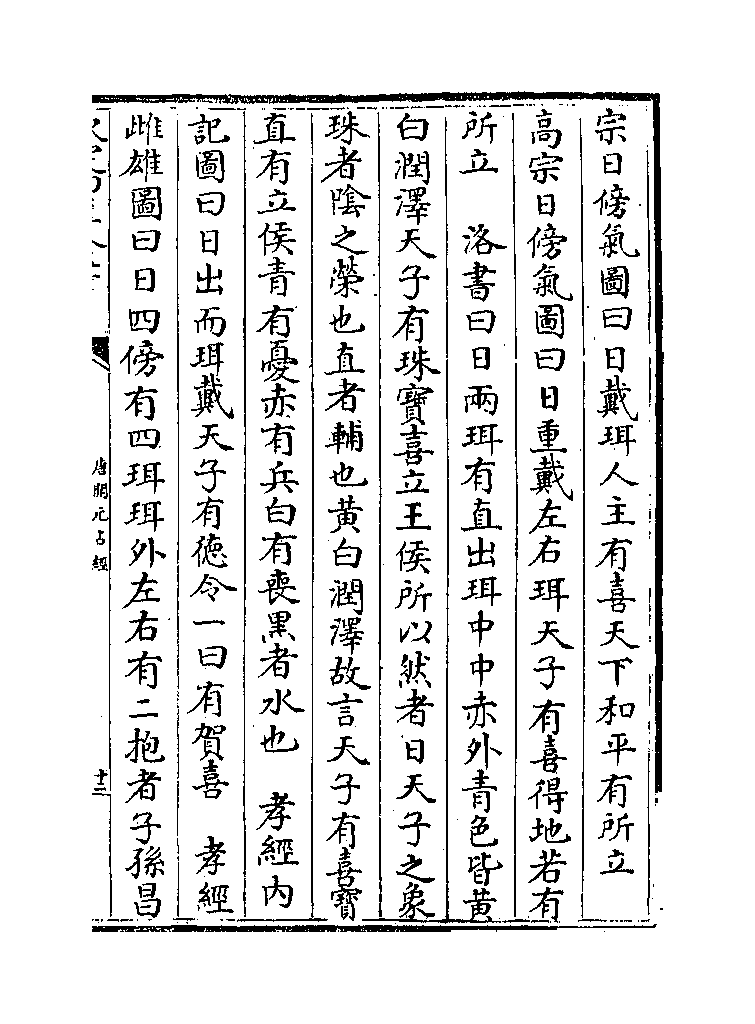 宗日傍氣圖曰日戴珥人主有喜天下和平有所立
高宗日傍氣圖曰日重戴左右珥天子有喜得地若有
所立　洛書曰日兩珥有直出珥中中赤外青色皆黃
白潤澤天子有珠寶喜立王侯所以然者日天子之象
珠者陰之榮也直者輔也黃白潤澤故言天子有喜寶
直有立侯青有憂赤有兵白有喪黑者水也　孝經內
記圖曰日出而珥戴天子有德令一曰有賀喜　孝經
雌雄圖曰日四傍有四珥珥外左右有二抱者子孫昌
唐開元占經
十二